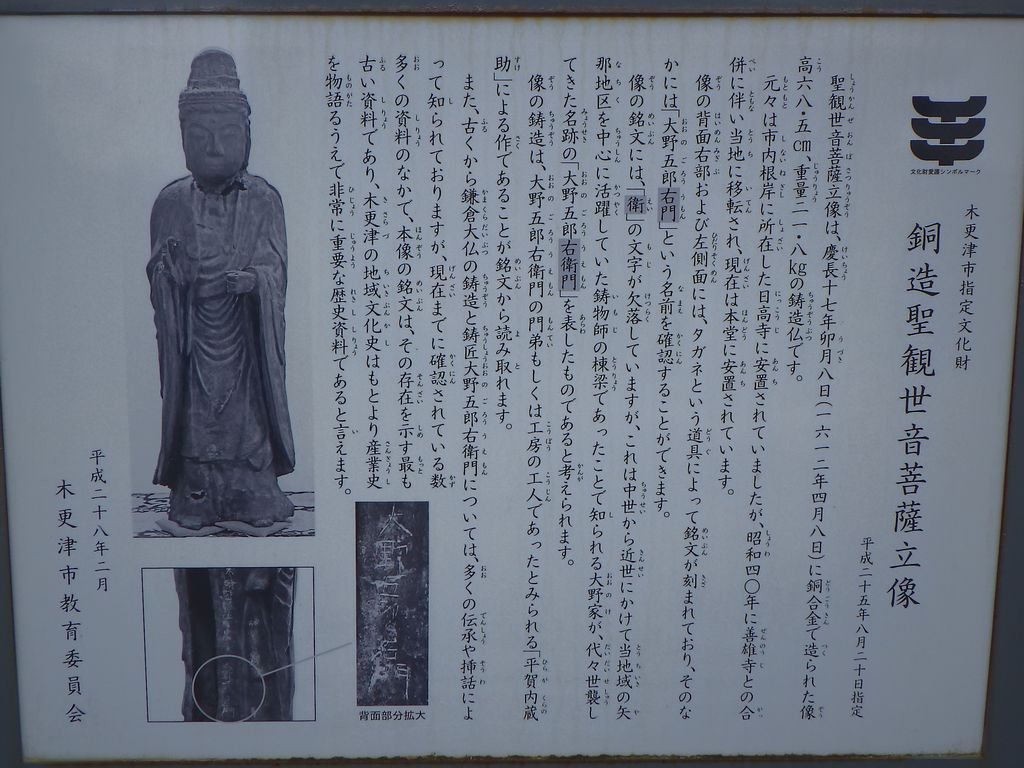 文化財愛護シンボルマーク
木更津市指定文化財
銅造聖観世音菩薩立像
平成二十五年八月二十日指定
聖観世音菩薩立像は、慶長十七年卯月八日(一六一二年四月八日)に銅合金で造られた像
高六八・五cm、重量二一・八kgの鋳造仏です。
元々は市内根岸に所在した日高寺に安置されていましたが、昭和四〇年に善雄寺との合
併に伴い当地に移転され、現在は本堂に安置されています。
像の背面右部および左側面には、タガネという道具によって銘文が刻まれており、そのな
かには「大野五郎右門」という名前を確認することができます。
像の銘文には、「衛」の文字が欠落していますが、これは中世から近世にかけて当地域の矢
那地区を中心に活躍していた鋳物師の棟梁であったことで知られる大野家が、代々世襲し
てきた名跡の「大野五郎右衛門」を表したものであると考えられます。
像の鋳造は、大野五郎右衛門の門弟もしくは工房の工人であったとみられる「平賀内蔵
助」による作であることが銘文から読み取れます。
また、古くから鎌倉大仏の鋳造と鋳匠大野五郎右衛門については、多くの伝承や挿話によ
って知られておりますが、現在までに確認されている数
多くの資料のなかで、本像の銘文は、その存在を示す最も
古い資料であり、木更津の地域文化史はもとより産業史
を物語るうえで非常に重要な歴史資料であると言えます。
背面部分拡大
平成二十八年二月
木更津市教育委員会